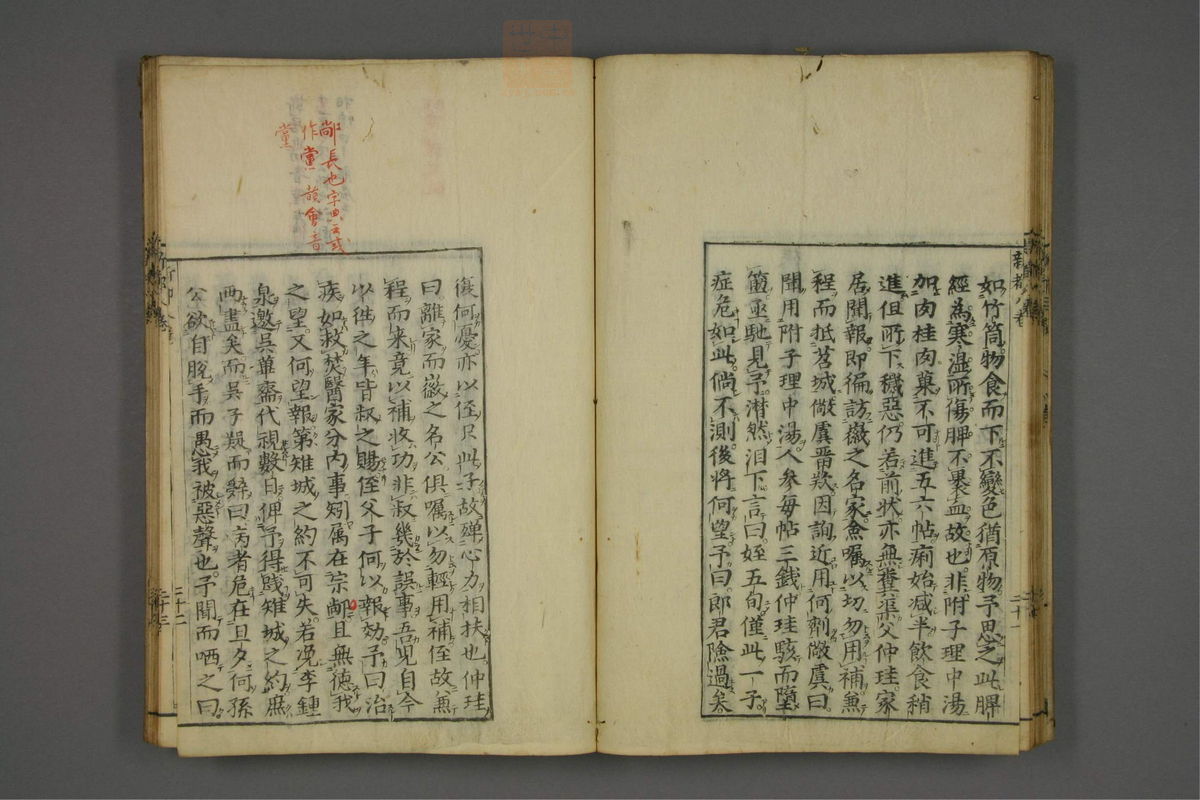 如竹筒物食而下不變色猶原物予思之此脾
經為寒溫所傷脾不裹血故也非附子理中湯
加肉桂肉菓不可進五六帖痢始减半飲食稍
進但所下穢惡仍若前狀亦無糞渠父仲珪家
居聞報即徧訪嶶之名家僉嘱以切勿用補兼
程而抵茗城傲虞晋欵因詢近用何劑傲虞曰
聞用附子理中湯人參每帖三錢仲珪駭而墮
箸亟馳見予潜然泪下言曰姪五旬僅此一子
症危如此倘不測後將何望予曰郎君險過矣
復何憂亦以侄只此子故殫心力相扶也仲珪
曰離家而嶶之名公俱嘱以勿輕用補侄故兼
程而来竟以補收功非叔幾於誤事吾児自今
以徃之年皆叔之賜侄父子何以報効予曰治
疾如救焚醫家分内事矧属在宗鄗且無徳我
之望又何望報第雉城之約不可失若况李鍾
泉邀呉葦齋代視數日俾予得踐雉城之約庶
両盡矣而呉子疑而辭曰病者危在旦夕何孫
公欲自脫手而愚我被惡聲也予聞而哂之曰
鄗長也字典云或
作黨韻會音
黨
新都八卷
二十一
二十二
二十三